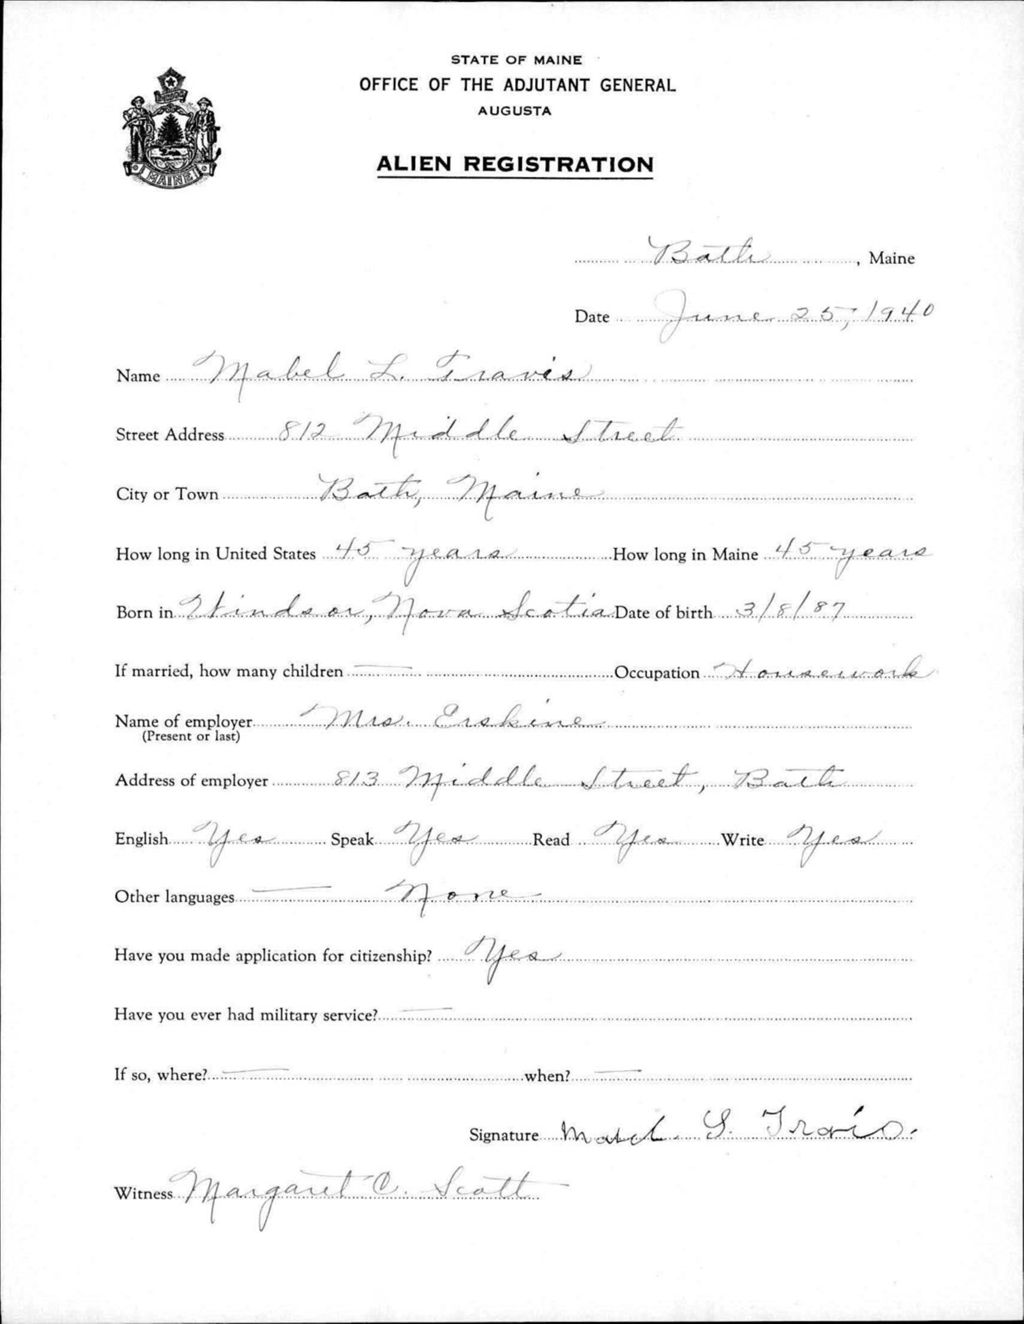 STATE OF MAINE
OFFICE OF THE ADJUTANT GENERAL
AUGUSTA
ALIEN REGISTRATION
MAINE
Bath, Maine
Date June 25, 1940
Name Mabel L. Travis
Street Address 812 Middle Street
City or Town Bath, Maine
How long in United States 45 years How long in Maine 45 years
Born in Windsor, Nova Scotia Date of birth 3/8/87
If married, how many children — Occupation Housework
Name of employer Mrs. Erskine
(Present or last)
Address of employer 813 Middle Street, Bath
English Yes Speak Yes Read Yes Write Yes
Other languages — None
Have you made application for citizenship? Yes
Have you ever had military service? —
If so, where? — when? —
Signature Mabel. L. Travis.
Witness Margaret C. Scott